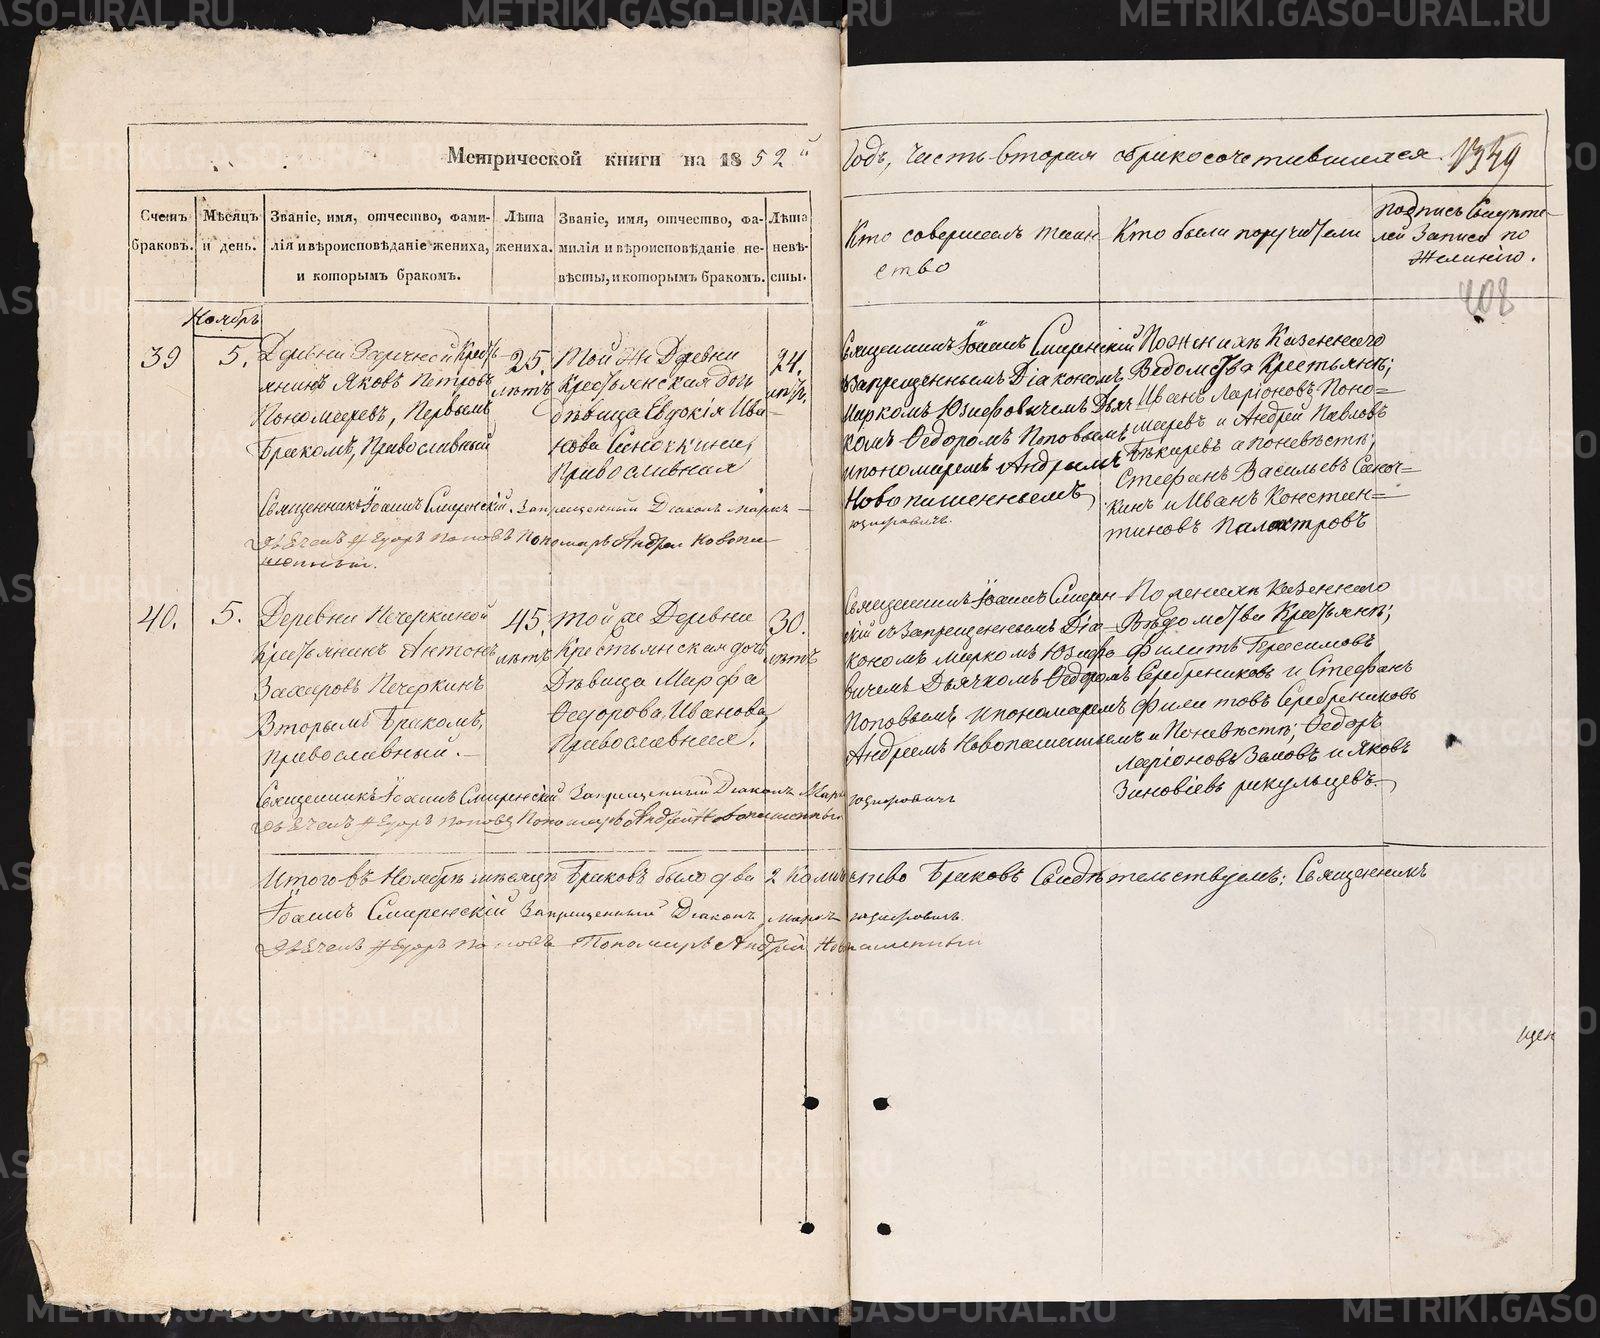 Метрической книги на 1852й
Годъ, часть вторая о бракосочетавшихся.
1319
Счетъ браковъ.
Мѣсяцъ и день.
Званіе, имя, отчество, фами-
лія и вѣроисповѣданіе жениха,
и которымъ бракомъ.
Лѣта жениха.
Званіе, имя, отчество, фа-
милія и вѣроисповѣданіе не-
вѣсты, и которымъ бракомъ.
Лѣта невѣ-
сты.
Кто совершалъ таин
ство
Кто были поручители
подпись Свидѣте-
лей Записи по
Желанію.
408
Ноябрь
39
5.
Деревни Заречной Кресть-
янинъ Яковъ Петровъ
Пономаревъ, Первымъ
Бракомъ, Православный
25.
лѣтъ
Той же Деревни
Крестьянская дочь
дѣвица Евдокія Ива-
нова Сеночкина,
Православная
24.
лѣтъ.
Священникъ Іоаннъ Смиренскій
запрещеннымъ Діакономъ
Маркомъ Юзифовичемъ Дьяч-
комъ Ѳедоромъ Поповымъ
и пономаремъ Андреемъ
Новопашеннымъ
По женихѣ Казеннаго
Ведомства Крестьянѣ;
Иванъ Ларіоновъ Поно-
маревъ и Андрей Павловъ
Бѣкаревъ а по невѣстѣ;
Стефанъ Васильевъ Сеноч-
кинъ и Иванъ Констан-
тиновъ Палактровъ
Священникъ Іоаннъ Смиренскій. Запрещенный Діаконъ Маркъ
юзифовичъ.
Дьячекъ Ѳедоръ Поповъ Пономарь Андрей Новопа-
шенный.
40.
5.
Деревни Печеркиной
Крестьянинъ Антонъ
Захаровъ Печеркинъ
Вторымъ Бракомъ,
православный.
45.
лѣтъ
той же Деревни
Крестьянская дочь
Дѣвица Марфа
Ѳедорова Иванова,
Православная.
30.
лѣтъ
Священникъ Іоаннъ Смирен
скій съ Запрещеннымъ Діа-
кономъ Маркомъ Юзифо
вичемъ Дьячкомъ Ѳедоромъ
Поповымъ и пономаремъ
Андреемъ Новопашеннымъ
По женихѣ Казеннаго
Вѣдомства Крестьянѣ;
Филипъ Герасимовъ
Серебрениковъ и Стефанъ
Филиповъ Серебрениковъ
и По невѣстѣ; Ѳедоръ
Ларіоновъ Зыковъ и Яковъ
Зиновіевъ
Священникъ Іоаннъ Смиренскій Запрещенный Діаконъ Маркъ юзифовичъ
Дьячекъ Ѳедоръ Поповъ Пономарь Андрей Новопашенный
Итого въ Ноябрѣ мѣсяцѣ Браковъ было два 2 Количество Браковъ Свидѣтельствуемъ: Священникъ
Іоаннъ Смиренскій Запрещенный Діаконъ Маркъ юзифовичъ.
Дьячекъ Ѳедоръ Поповъ Пономарь Андрей Новопашенный
METRIKI.GASO-URAL.RU